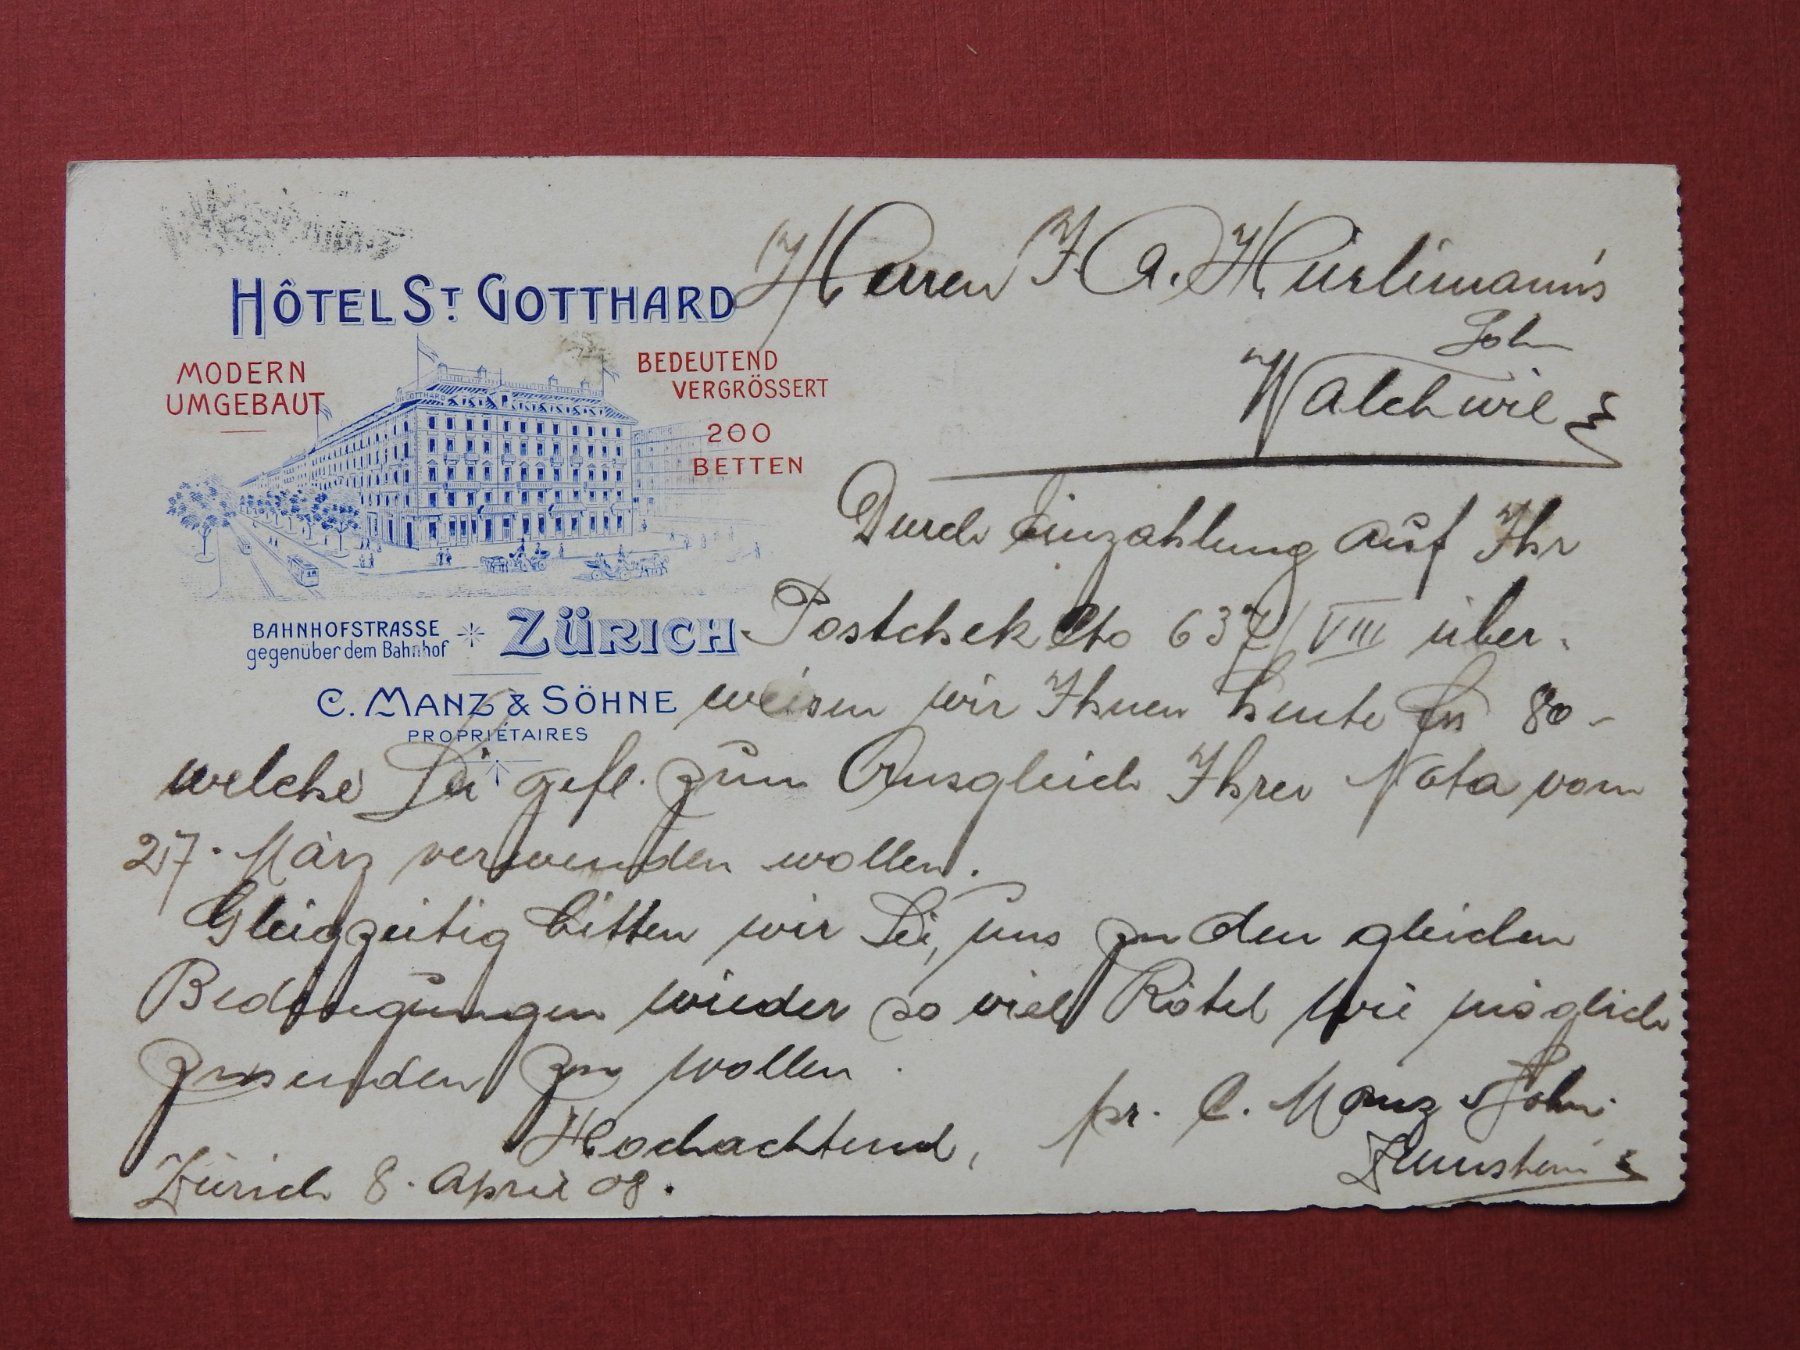 HÔTEL ST GOTTHARD
MODERN
UMGEBAUT
BEDEUTEND
VERGRÖSSERT
200
BETTEN
ST GOTTHARD
BAHNHOFSTRASSE
gegenüber dem Bahnhof
ZÜRICH
C. MANZ & SÖHNE
PROPRIÉTAIRES
Herren J. A. Hürlimann's
Sohn
Walchwil
Durch Einzahlung auf Ihr
Postchek Cto 637/VIII über-
weisen wir Ihnen heute frs 80-
welche Sie gefl. zum Ausgleich Ihrer Nota vom
27. März verwenden wollen.
Gleigzeitig bitten wir Sie, uns zu den gleichen
Bedingungen wieder so viel Rötel wie möglich
zusenden zu wollen.
Hochachtend,
pr. C. Manz & Söhne.
Zürich 8. April 08.